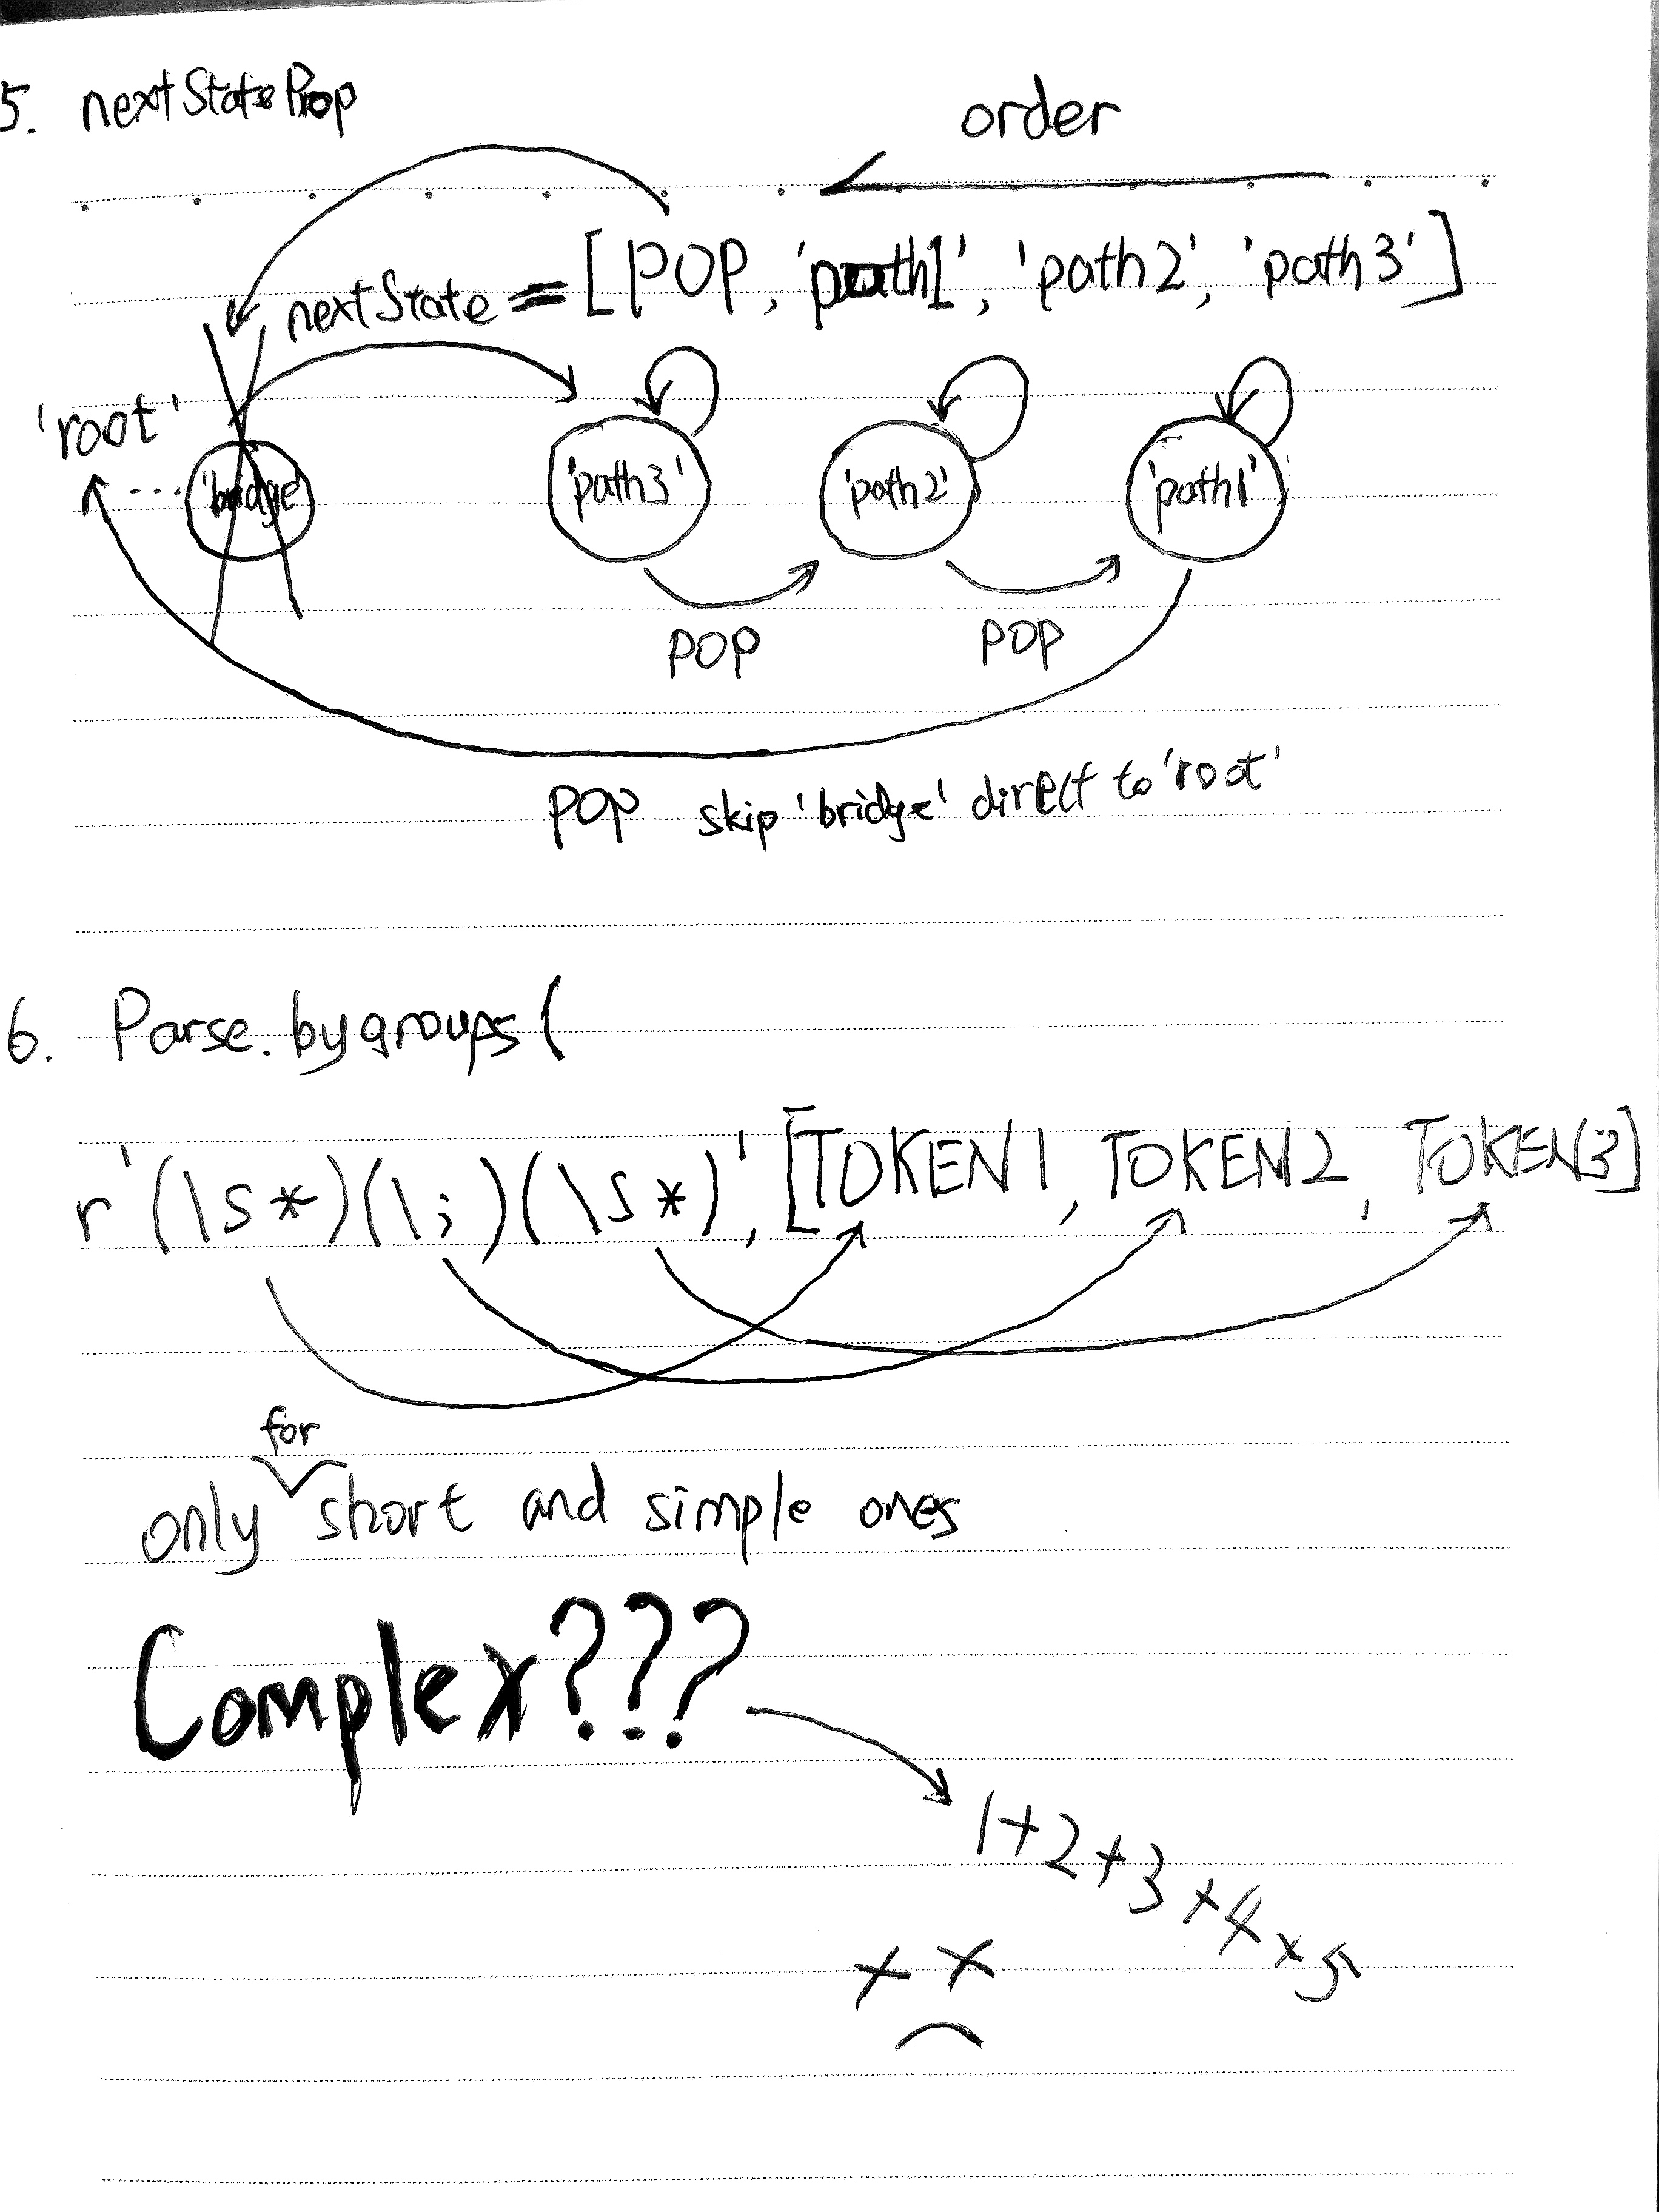 5. nextStateProp
order
nextState = [POP, 'path1', 'path2', 'path3']
'root'
... 'bridge' 'path3' 'path2' 'path1'
POP POP
POP skip 'bridge' direct to 'root'
6. Parse.bygroups(
r'(\s*)(\;)(\s*)', [TOKEN1, TOKEN2, TOKEN3]
for
only short and simple ones
Complex???
1+2+3+4x5